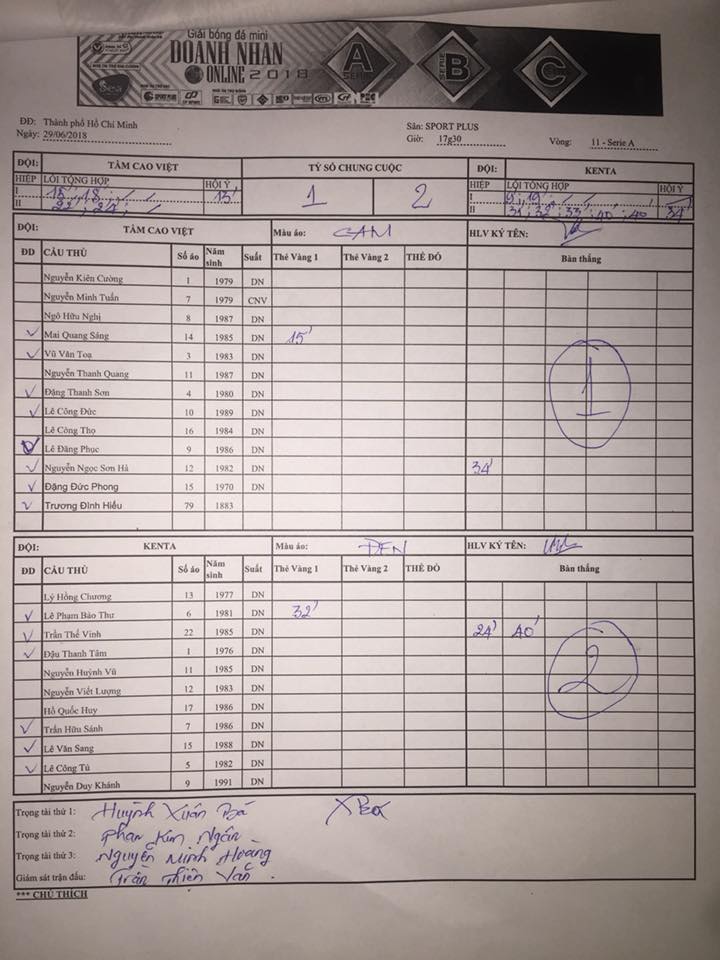 Giải bóng đá mini
DOANH NHÂN
ONLINE 2018
SERIE A
SERIE B
SERIE C
ĐĐ: Thành phố Hồ Chí Minh Sân: SPORT PLUS
Ngày: 29/06/2018 Giờ: 17g30 Vòng: 11 - Serie A
ĐỘI: TÂM CAO VIỆT TỶ SỐ CHUNG CUỘC ĐỘI: KENTA
HIỆP LỖI TỔNG HỢP HỘI Ý 1 2 HIỆP LỖI TỔNG HỢP HỘI Ý
I 15', 18' 13' I 9', 19'
II 22', 24' II 31', 32', 33', 40', 40' 34'
ĐỘI: TÂM CAO VIỆT Màu áo: CAM HLV KÝ TÊN:
ĐD CẦU THỦ Số áo Năm sinh Suất Thẻ Vàng 1 Thẻ Vàng 2 THẺ ĐỎ Bàn thắng
Nguyễn Kiên Cường 1 1979 DN
Nguyễn Minh Tuấn 7 1979 CNV
Ngô Hữu Nghị 8 1987 DN
✓ Mai Quang Sáng 14 1985 DN 15'
✓ Vũ Văn Toạ 3 1983 DN
Nguyễn Thanh Quang 11 1987 DN
✓ Đặng Thanh Sơn 4 1980 DN 1
✓ Lê Công Đức 10 1989 DN
Lê Công Thọ 16 1984 DN
✓ Lê Đăng Phục 9 1986 DN
✓ Nguyễn Ngọc Sơn Hà 12 1982 DN 34'
✓ Đặng Đức Phong 15 1970 DN
✓ Trương Đình Hiếu 79 1883
ĐỘI: KENTA Màu áo: ĐEN HLV KÝ TÊN:
ĐD CẦU THỦ Số áo Năm sinh Suất Thẻ Vàng 1 Thẻ Vàng 2 THẺ ĐỎ Bàn thắng
Lý Hồng Chương 13 1977 DN
✓ Lê Phạm Bảo Thư 6 1981 DN 32'
✓ Trần Thế Vinh 22 1985 DN 24' 40'
✓ Đậu Thanh Tâm 1 1976 DN
Nguyễn Huỳnh Vũ 11 1985 DN 2
Nguyễn Viết Lượng 12 1983 DN
Hồ Quốc Huy 17 1986 DN
✓ Trần Hữu Sánh 7 1986 DN
✓ Lê Văn Sang 15 1988 DN
✓ Lê Công Tú 5 1982 DN
Nguyễn Duy Khánh 9 1991 DN
Trọng tài thứ 1: Huỳnh Xuân Bá
Trọng tài thứ 2: Phan Kim Ngân
Trọng tài thứ 3: Nguyễn Minh Hoàng
Giám sát trận đấu: Trần Thiên Vấn
*** CHÚ THÍCH